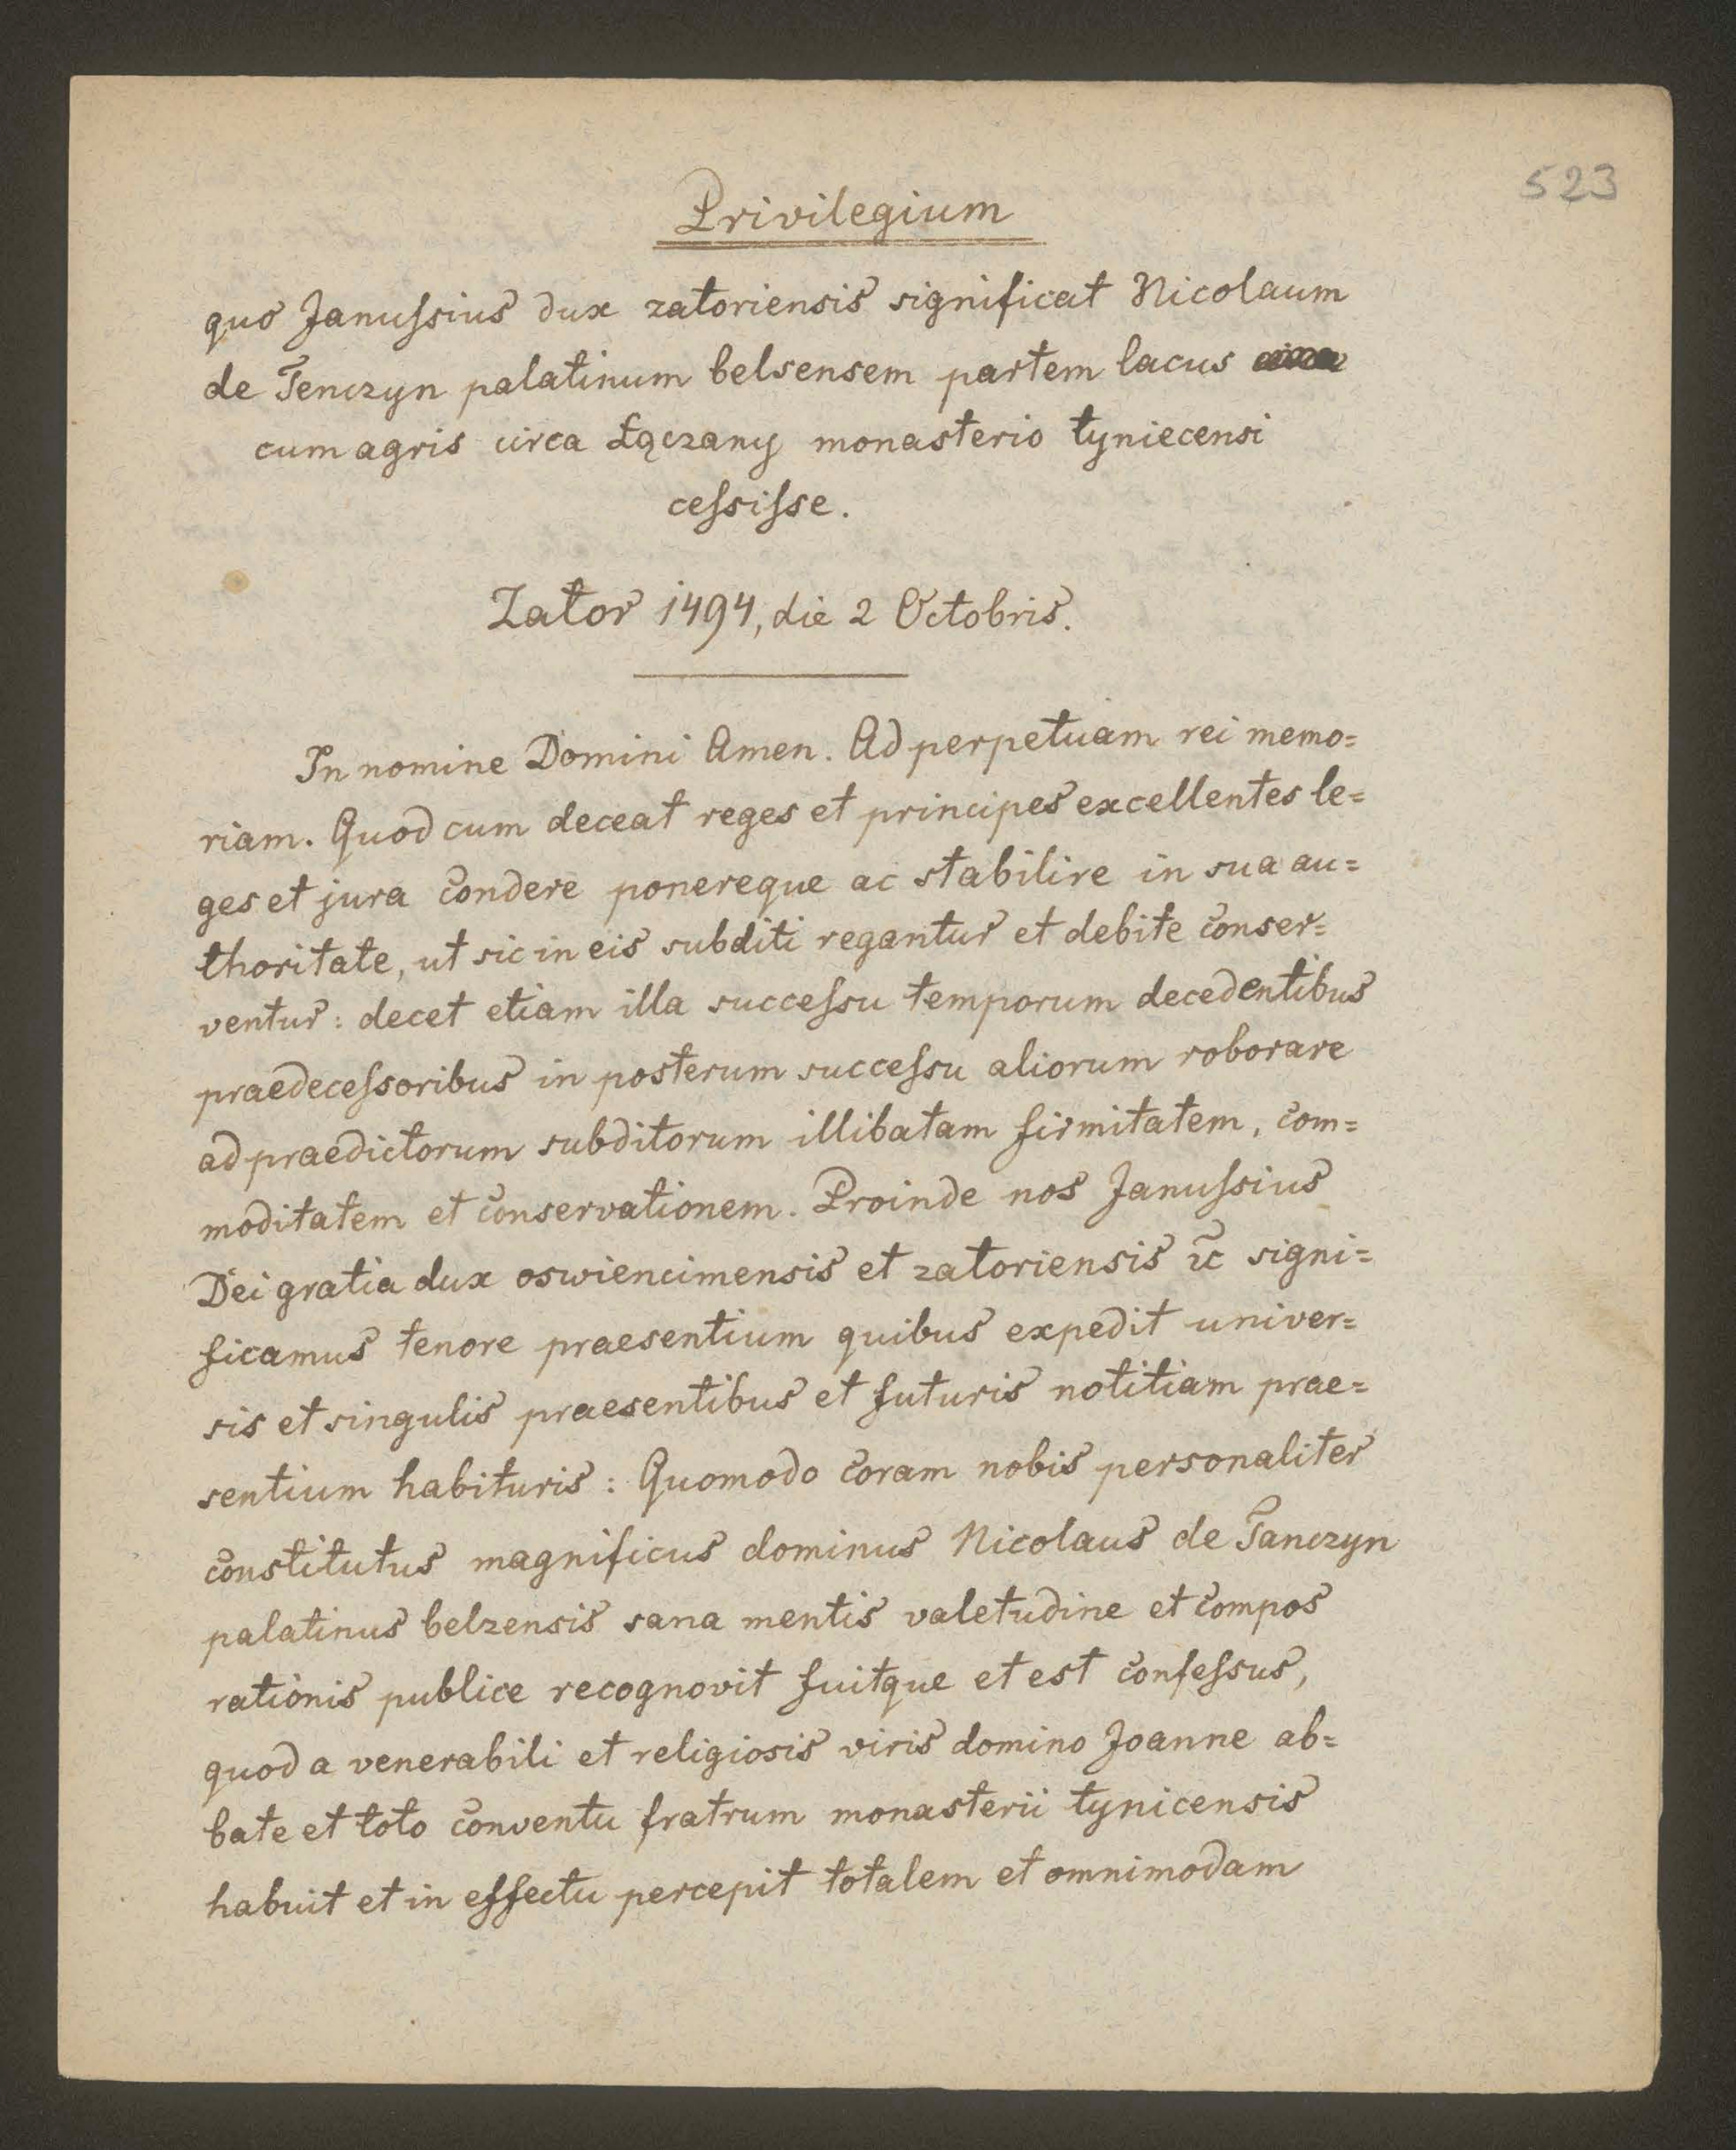 523
Privilegium
quo Januſsius dux zatoriensis significat Nicolaum
de Tenczyn palatinum belsensem partem lacus
cum agris circa Łączany monasterio tyniecensi
ceſsiſse.
Zator 1494, die 2 Octobris.
In nomine Domini Amen. Ad perpetuam rei memo=
riam. Quod cum deceat reges et principes excellentes le=
ges et jura condere ponereque ac stabilire in sua au=
thoritate, ut sic in eis subditi regantur et debite conser=
ventur: decet etiam illa succeſsu temporum decedentibus
praedeceſsoribus in posterum succeſsu aliorum roborare
ad praedictorum subditorum illibatam firmitatem, com=
moditatem et conservationem. Proinde nos Januſsius
Dei gratia dux oswiencimensis et zatoriensis ꝛc signi=
ficamus tenore praesentium quibus expedit univer=
sis et singulis praesentibus et futuris notitiam prae=
sentium habituris: Quomodo coram nobis personaliter
constitutus magnificus dominus Nicolaus de Tanczyn
palatinus belzensis sana mentis valetudine et compos
rationis publice recognovit fuitque et est confeſsus,
quod a venerabili et religiosis viris domino Joanne ab=
bate et toto conventu fratrum monasterii tynicensis
habuit et in effectu percepit totalem et omnimodam